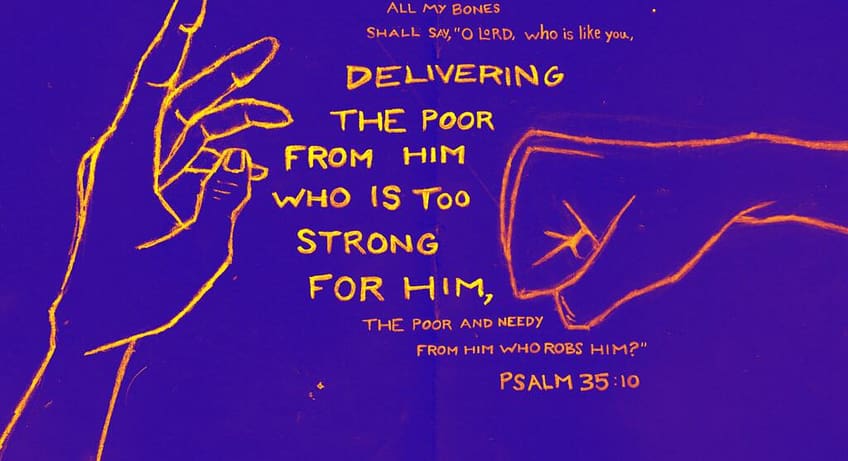 ALL MY BONES
SHALL SAY, "O LORD, who is like you,
DELIVERING
THE POOR
FROM HIM
WHO IS TOO
STRONG
FOR HIM,
THE POOR AND NEEDY
FROM HIM WHO ROBS HIM?"
PSALM 35:10